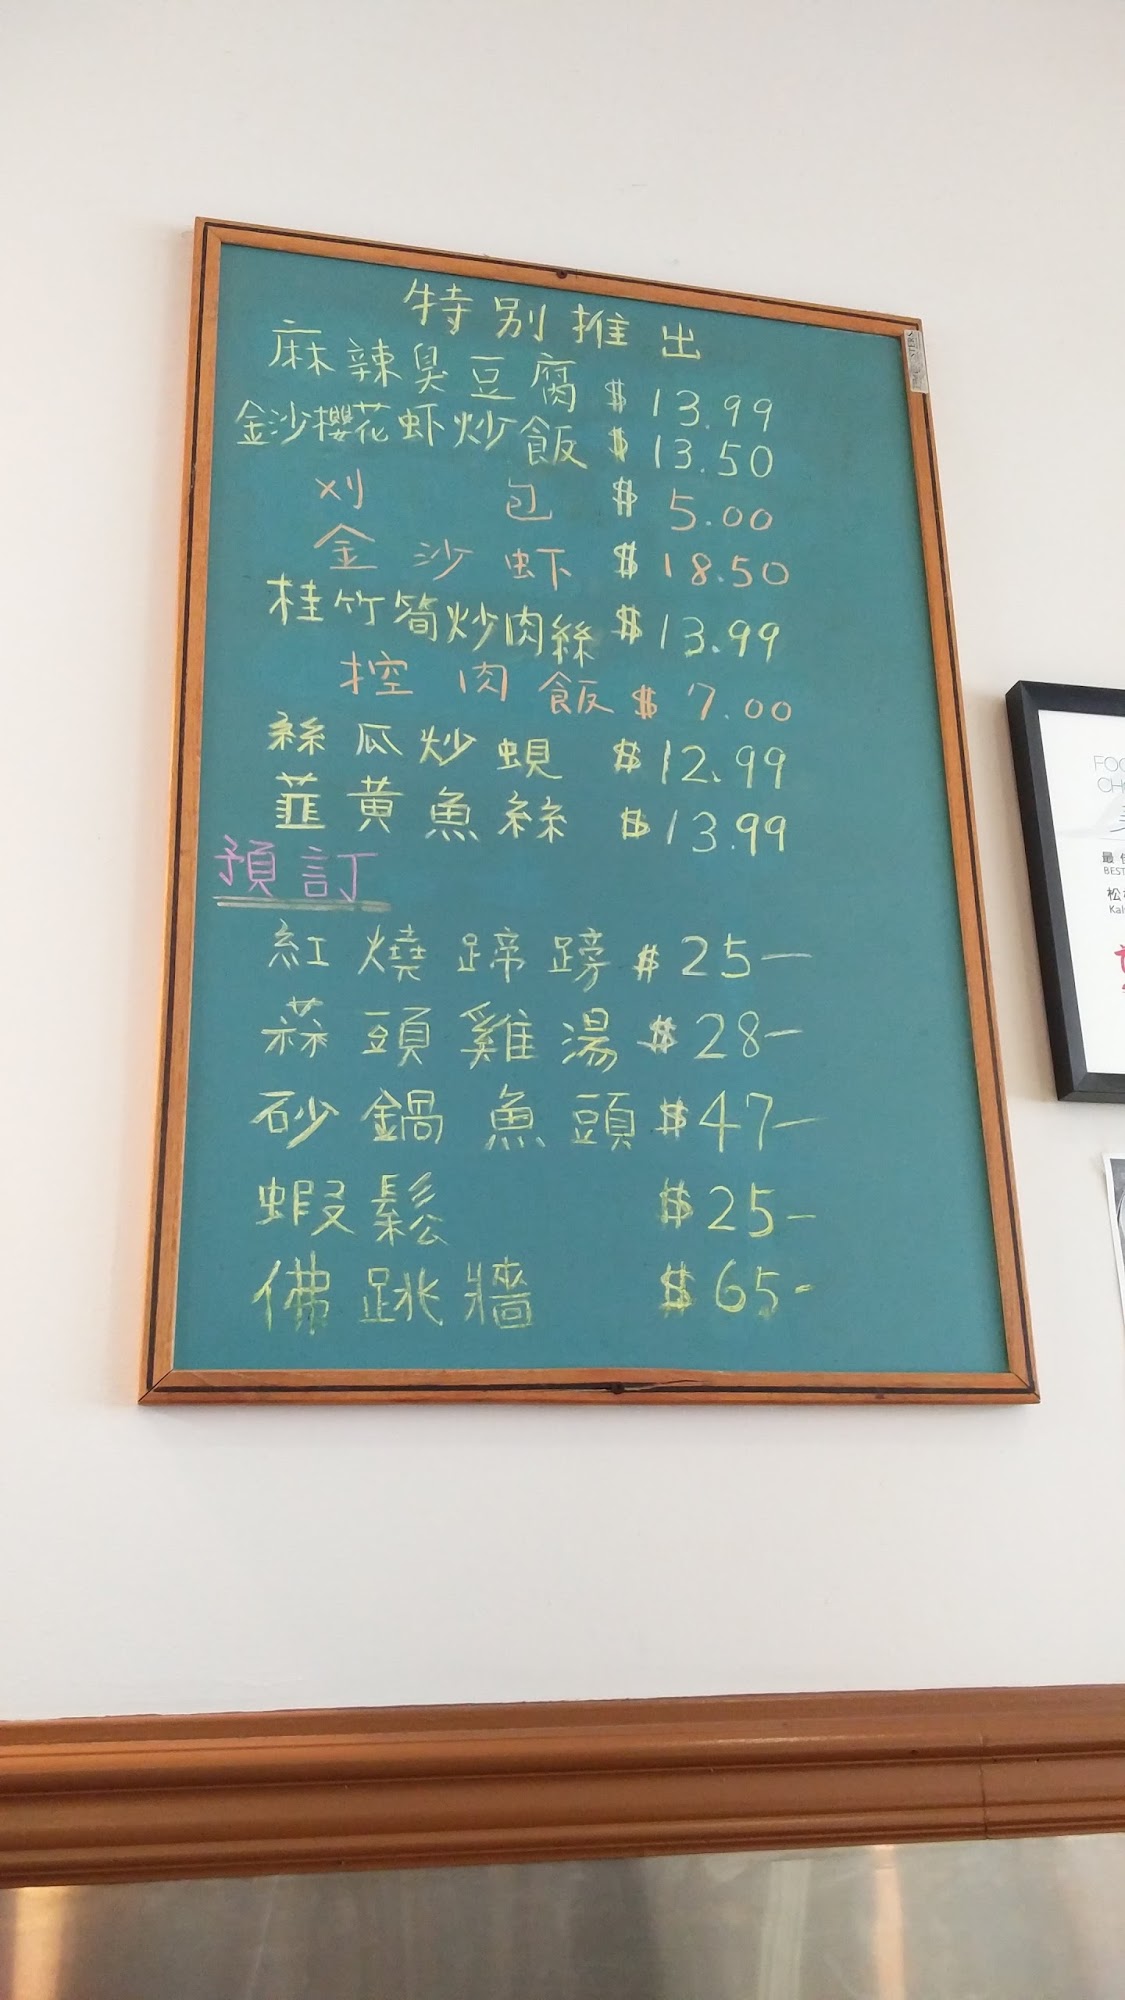 特別推出
麻辣臭豆腐 $13.99
金沙櫻花虾炒飯 $13.50
刈包 $5.00
金沙虾 $18.50
桂竹筍炒肉絲 $13.99
控肉飯 $7.00
絲瓜炒蜆 $12.99
韮黃魚絲 $13.99
預訂
紅燒蹄膀 $25-
蒜頭雞湯 $28-
砂鍋魚頭 $47-
蝦鬆 $25-
佛跳牆 $65-
FOO
CH
最佳
BEST
松
Kal